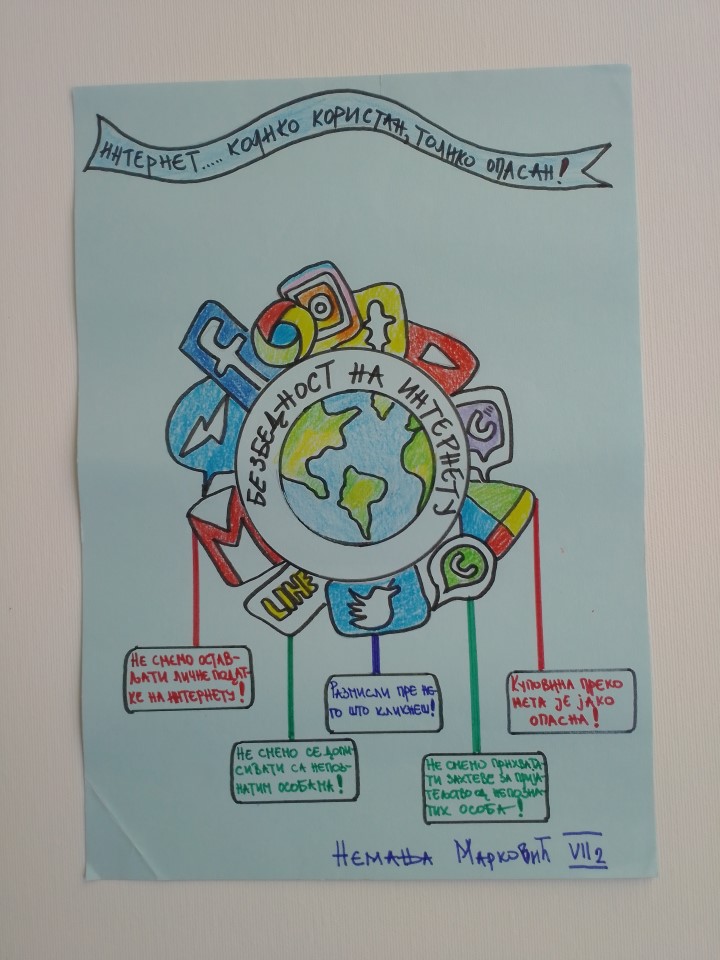 ИНТЕРНЕТ..... КОЛИКО КОРИСТАН, ТОЛИКО ОПАСАН!
БЕЗБЕДНОСТ НА ИНТЕРНЕТУ
LINE
НЕ СМЕМО ОСТАВ-
ЉАТИ ЛИЧНЕ ПОДАТ-
КЕ НА ИНТЕРНЕТУ!
РАЗМИСЛИ ПРЕ НЕ-
ГО ШТО КЛИКНЕШ!
КУПОВИНА ПРЕКО
НЕТА ЈЕ ЈАКО
ОПАСНА!
НЕ СМЕМО СЕ ДОПИ-
СИВАТИ СА НЕПОЗ-
НАТИМ ОСОБАМА!
НЕ СМЕМО ПРИХВАТА-
ТИ ЗАХТЕВЕ ЗА ПРИЈА-
ТЕЉСТВО ОД НЕПОЗНА-
ТИХ ОСОБА!
НЕМАЊА МАРКОВИЋ VII2